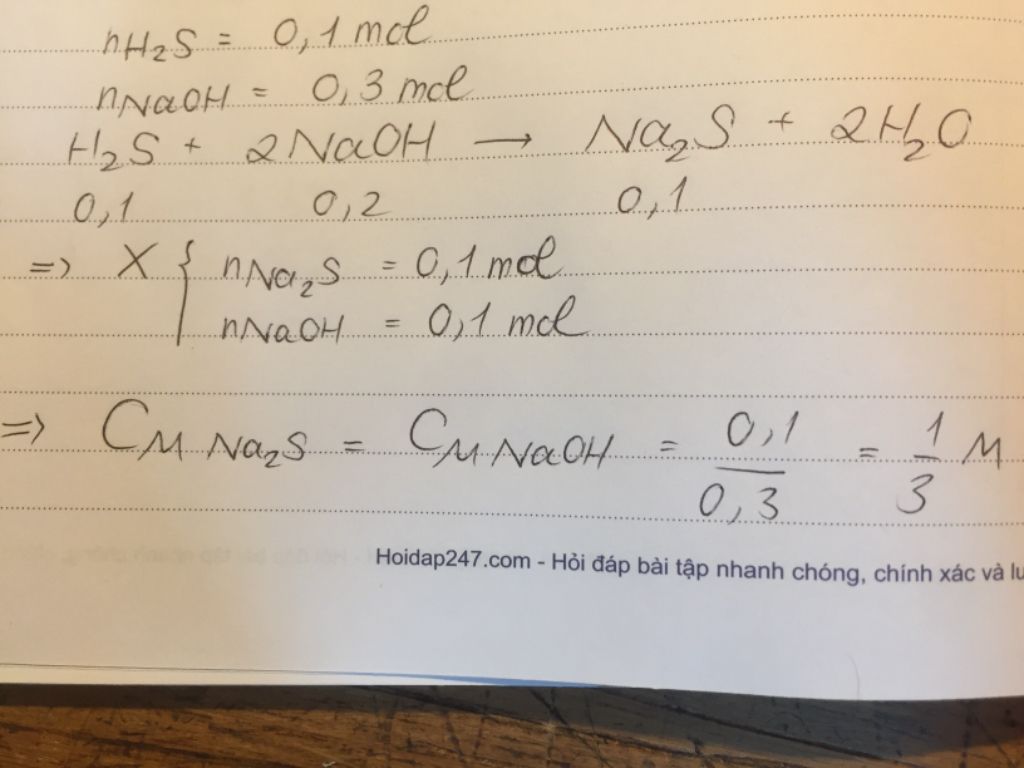 nH₂S = 0,1 mol
nNaOH = 0,3 mol
H₂S + 2NaOH → Na₂S + 2H₂O
0,1 0,2 0,1
=> X { nNa₂S = 0,1 mol
nNaOH = 0,1 mol
=> CM Na₂S = CM NaOH = 0,1/0,3 = 1/3 M
Hoidap247.com - Hỏi đáp bài tập nhanh chóng, chính xác và